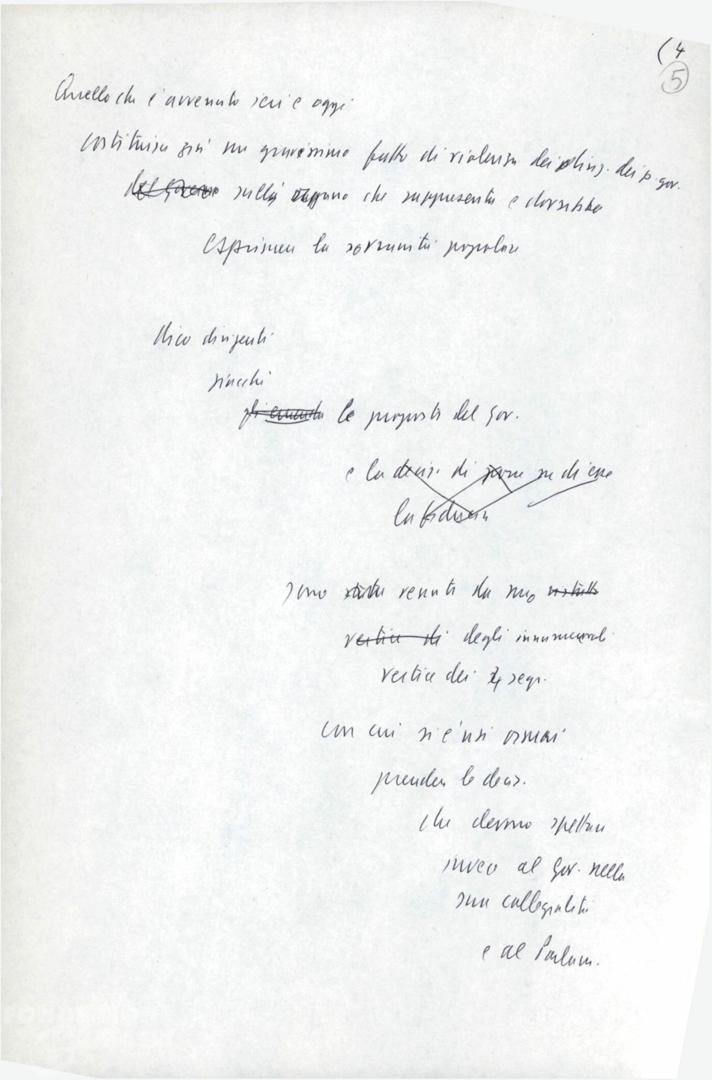 (4
5
Quello che è avvenuto ieri e oggi
costituisce già un gravissimo fatto di violenza dei dei p. gov.
del governo sulla che rappresenta e dovrebbe
esprimere la sovranità popolare
dico dirigenti
giacché
gli le proposte del gov.
e la decis. di porre su di esse
la fiducia
sono state venute da uno
vertice di degli innumerevoli
vertici dei 4 segr.
con cui si è usi ormai
prendere le decis.
che devono spettare
invece al Gov. nella
sua collegialità
e al Parlam.